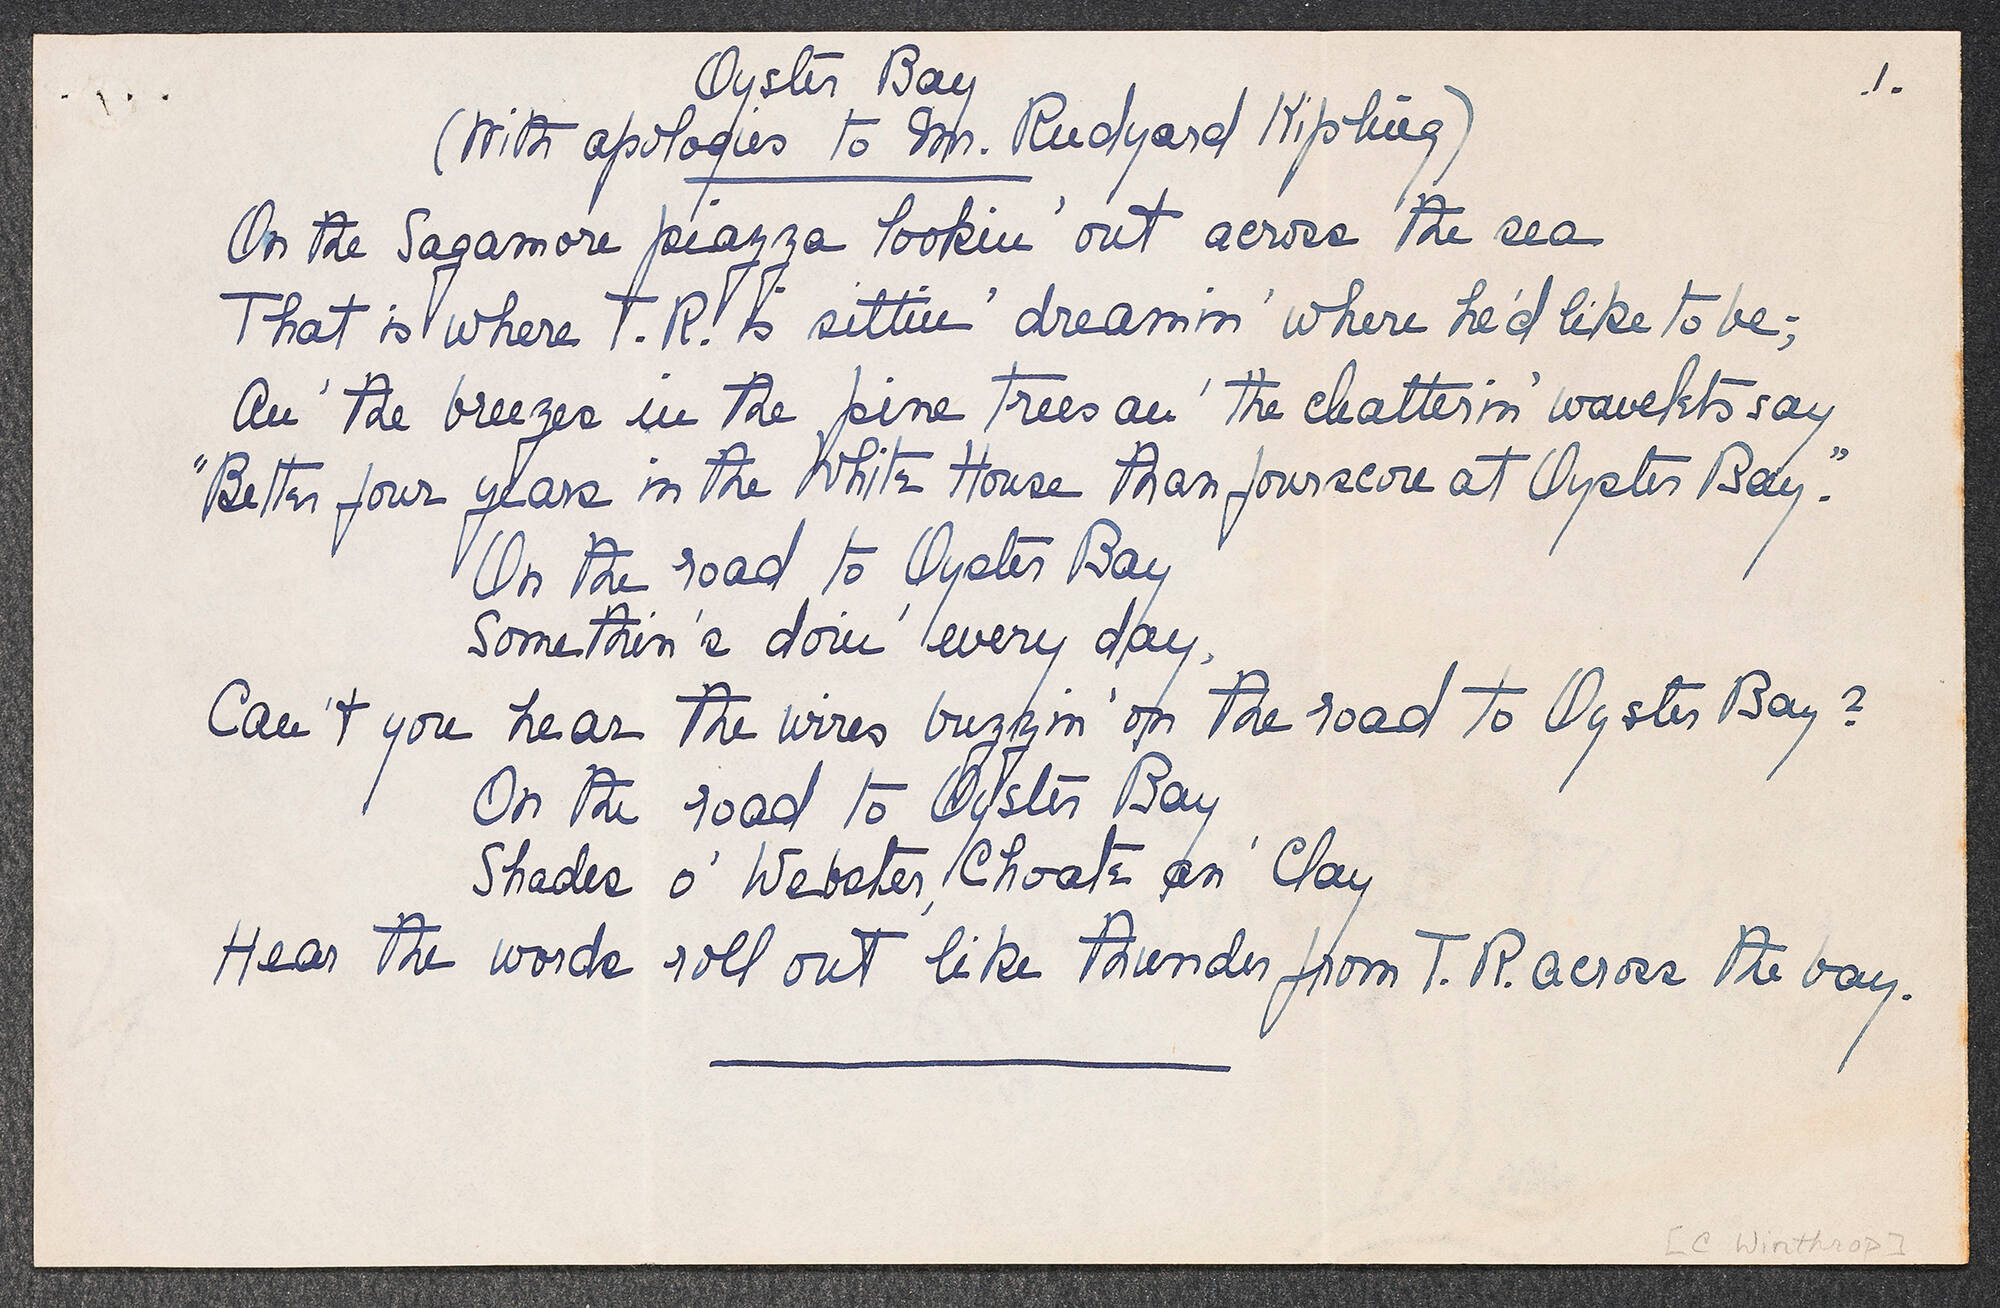 1.
Oyster Bay
(With apologies to Mr. Rudyard Kipling)
On the Sagamore piazza lookin' out across the sea
That is where T. R. is sittin' dreamin' where he'd like to be;
An' the breezes in the pine trees an' the chatterin' wavelets say
"Better four years in the White House than fourscore at Oyster Bay."
On the road to Oyster Bay
Somethin's doin' every day,
Can't you hear the wires buzzin' on the road to Oyster Bay?
On the road to Oyster Bay
Shades o' Webster, Choate an' Clay
Hear the words roll out like thunder from T. R. across the bay.
[C Winthrop]